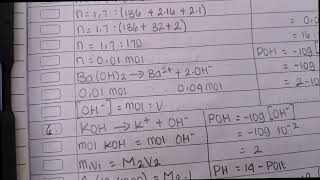 n = 1,7 : (136 + 2.16 + 2.1)
n = 1,7 : (136 + 32 + 2)
n = 1,7 : 170
n = 0,01 mol
Ba(OH)₂ → Ba²⁺ + 2.OH⁻
0,01 mol
[OH⁻] = mol : V
6. KOH → K⁺ + OH⁻
mol KOH = mol OH⁻
M₁V₁ = M₂V₂
= 0,0
= 16.
POH = -log
= -log
= 2-log
POH = -log [OH⁻]
= -log 10⁻²
= 2
PH = 14 - POH